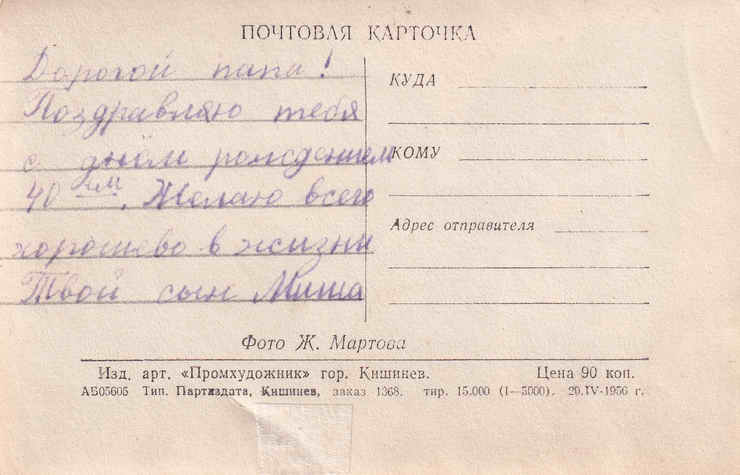 ПОЧТОВАЯ КАРТОЧКА
Дорогой папа!
Поздравляю тебя
с днём рождением
40 ым. Желаю всего
хорошево в жизни
Твой сын Миша
КУДА
КОМУ
Адрес отправителя
Фото Ж. Мартова
Изд. арт. «Промхудожник» гор. Кишинев. Цена 90 коп.
АБ05605 Тип. Партиздата, Кишинев, заказ 1368. тир. 15.000 (1—5000). 20.IV-1956 г.